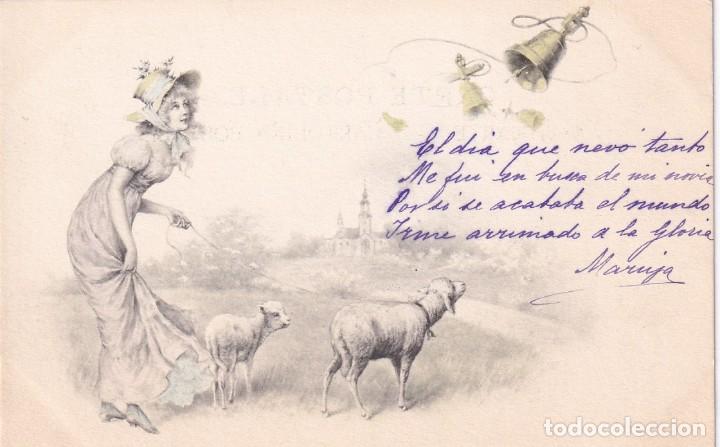 El dia que nevó tanto
Me fui en busca de mi novia
Por si se acababa el mundo
Irme arrimado a la Gloria
Maruja
todocoleccion